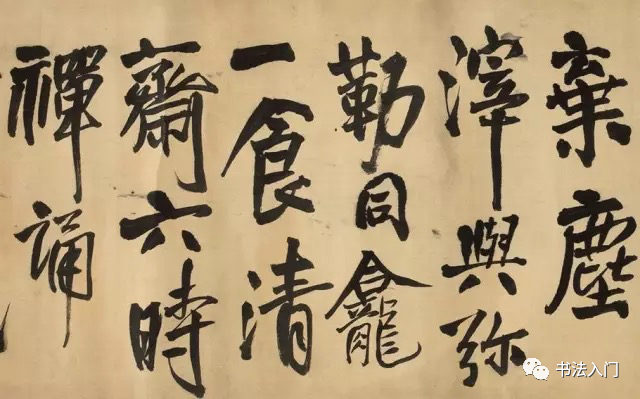 棄塵
滓與弥
勒同龕
一食清
齋六時
禪誦
书法入门